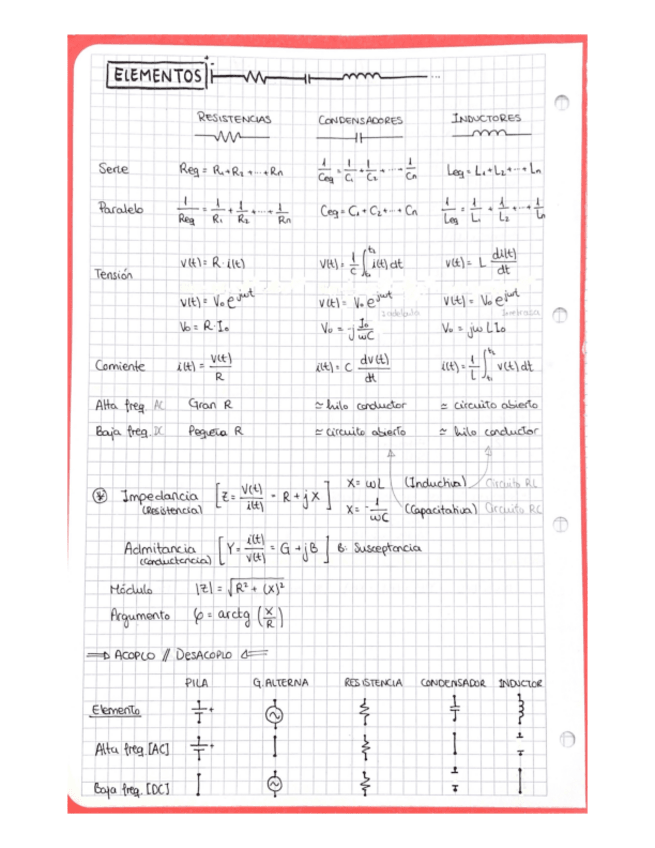 ELEMENTOS
RESISTENCIAS CONDENSADORES INDUCTORES
Serie Req = R₁+R₂+...+Rn 1/Ceq = 1/C₁ + 1/C₂ + ... + 1/Cn Leq = L₁+L₂+...+Ln
Paralelo 1/Req = 1/R₁ + 1/R₂ + ... + 1/Rn Ceq = C₁+C₂+...+Cn 1/Leq = 1/L₁ + 1/L₂ + ... + 1/Ln
Tensión v(t) = R·i(t) v(t) = 1/C ∫ i(t) dt v(t) = L di(t)/dt
v(t) = V₀ e^jωt v(t) = V₀ e^jωt v(t) = V₀ e^jωt
V₀ = R·I₀ V₀ = -j I₀/ωC V₀ = jωLI₀
Corriente i(t) = v(t)/R i(t) = C dv(t)/dt i(t) = 1/L ∫ v(t) dt
Alta freq. AC Gran R ≃ hilo conductor ≃ circuito abierto
Baja freq. DC Pequeña R ≃ circuito abierto ≃ hilo conductor
* Impedancia [Z = v(t)/i(t) = R + jX] X = ωL (Inductiva) Circuito RL
(Resistencia) X = -1/ωC (Capacitativa) Circuito RC
Admitancia [Y = i(t)/v(t) = G + jB] B: Susceptancia
(conductancia)
Módulo |Z| = √R² + (X)²
Argumento φ = arctg (X/R)
⇒ ACOPLO // DESACOPLO ⇐
PILA G. ALTERNA RESISTENCIA CONDENSADOR INDUCTOR
Elemento
Alta freq. [AC]
Baja freq. [DC]